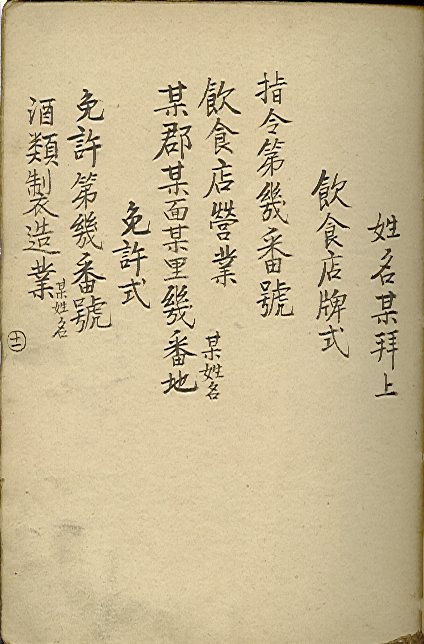 姓名某拜上
飲食店牌式
指令第幾番號
飲食店營業 某姓名
某郡某面某里幾番地
免許式
免許第幾番號
酒類製造業 某姓名
十二